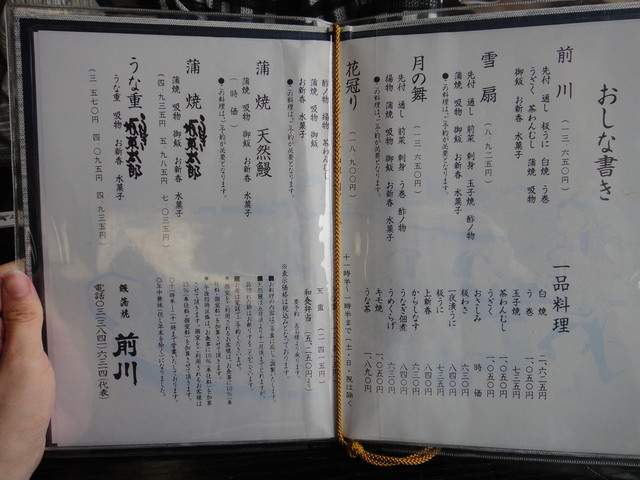 おしな書き
前川 (一三、六五〇円)
先付 通し 桜うに 白焼 う巻
うざく 茶わんむし 蒲焼 吸物
御飯 お新香 水菓子
雪扇 (八、九二五円)
先付 通し 前菜 刺身 玉子焼 酢ノ物
蒲焼 吸物 御飯 お新香 水菓子
●この料理は、ご予約が必要となります。
月の舞 (一三、六五〇円)
先付 通し 前菜 刺身 う巻 酢ノ物
揚物 蒲焼 吸物 御飯 お新香 水菓子
●この料理は、ご予約が必要となります。
花冠り (一八、九〇〇円)
一品料理
白焼 二、六二五円
う巻 一、〇五〇円
玉子焼 七三五円
茶わんむし 一、〇五〇円
うざく 一、〇五〇円
おさしみ 時価
桜わさ 六三〇円
一夜漬うに 八四〇円
桜うに 七三五円
上新香 八四〇円
からしなす 六三〇円
うなぎ佃煮 八四〇円
うめくらげ 六三〇円
キモ焼 一、〇五〇円
うな茶 一、八九〇円
十一時半~一時半まで(土・日・祝は除く)
酢ノ物 揚物 茶わんむし
蒲焼 吸物 御飯
お新香 水菓子
●この料理は、ご予約が必要となります。
蒲焼 天然鰻
(時価)
蒲焼 吸物 御飯 お新香 水菓子
●この料理は、ご予約が必要となります。
蒲焼 うなぎ坂東太郎
蒲焼 吸物 御飯 お新香 水菓子
(四、九三五円 五、九八五円 七、〇三五円)
うな重 うなぎ坂東太郎
うな重 吸物 お新香 水菓子
(三、五七〇円 四、〇九五円 四、九三五円)
天重 (二、四一五円)
和食弁当 (五、二五〇円より)
※表示価格は税込みとなっております。
鰻蒲焼 前川
電話〇三-三八四一-六三一四(代表)